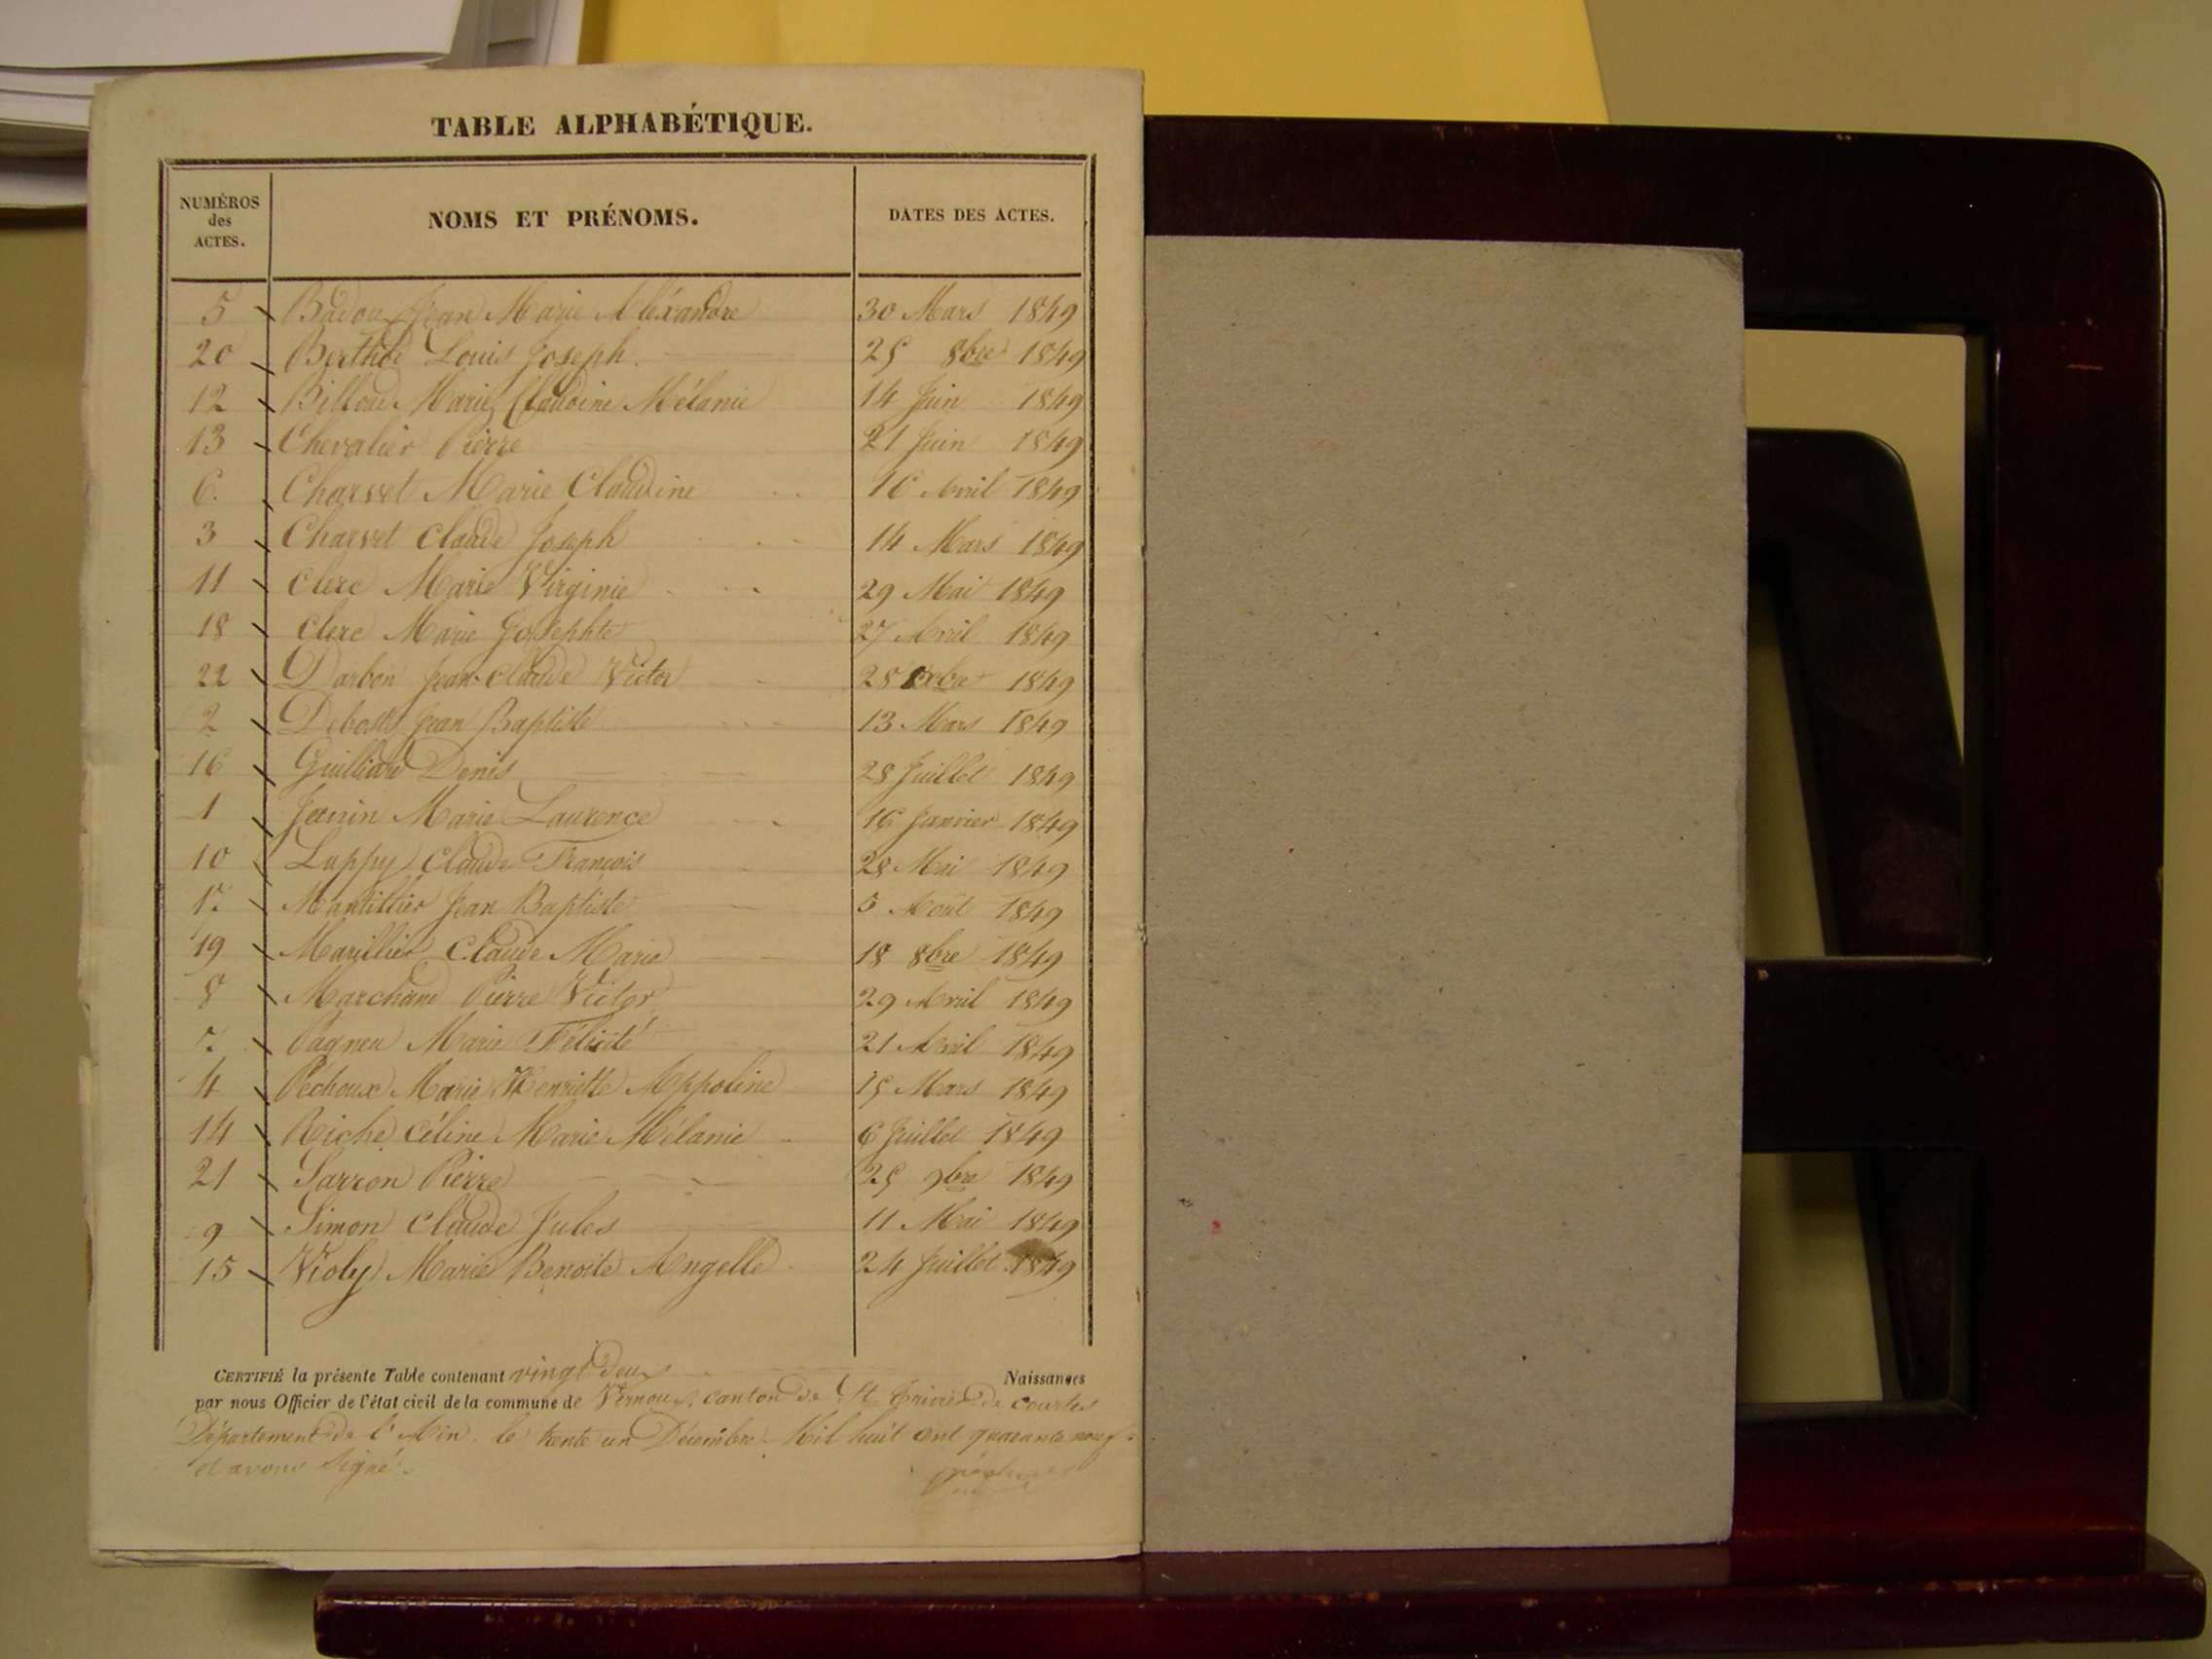 TABLE ALPHABÉTIQUE.
NUMÉROS des ACTES. NOMS ET PRÉNOMS. DATES DES ACTES.
5 Badoux Jean Marie Aléxandre 30 Mars 1849
20 Berthod Louis Joseph 25 8bre 1849
12 Billoud Marie Claudine Mélanie 14 Juin 1849
13 Chevalier Pierre 21 Juin 1849
6. Charvet Marie Claudine 16 Avril 1849
3 Charvet Claude Joseph 14 Mars 1849
11 Clerc Marie Virginie 29 Mai 1849
18 Clerc Marie Josephte 27 Avril 1849
22 Darbon Jean-Claude Victor 28 1849
2 Debost Jean Baptiste 13 Mars 1849
16 Guillard Denis 28 Juillet 1849
1 Janin Marie Laurence 16 Janvier 1849
10 Luppy Claude François 28 Mai 1849
17. Mantillier Jean Baptiste 5 Août 1849
19 Marillier Claude Marie 18 8bre 1849
8 Marchand Pierre Victor 29 Avril 1849
7. Pagneu Marie Félicité 21 Avril 1849
4 Péchoux Marie Henriette Appoline 15 Mars 1849
14 Riche Céline Marie Mélanie 6 Juillet 1849
21 Sarron Pierre 25 9bre 1849
9 Simon Claude Jules 11 Mai 1849
15 Violy Marie Benoite Angelle 24 Juillet 1849
CERTIFIÉ la présente Table contenant vingt Deux Naissances
par nous Officier de l'état civil de la commune de Vernoux, canton de St Trivier de Courtes
Département de l'Ain. le trente un Décembre Mil huit cent quarante neuf
et avons Signé.